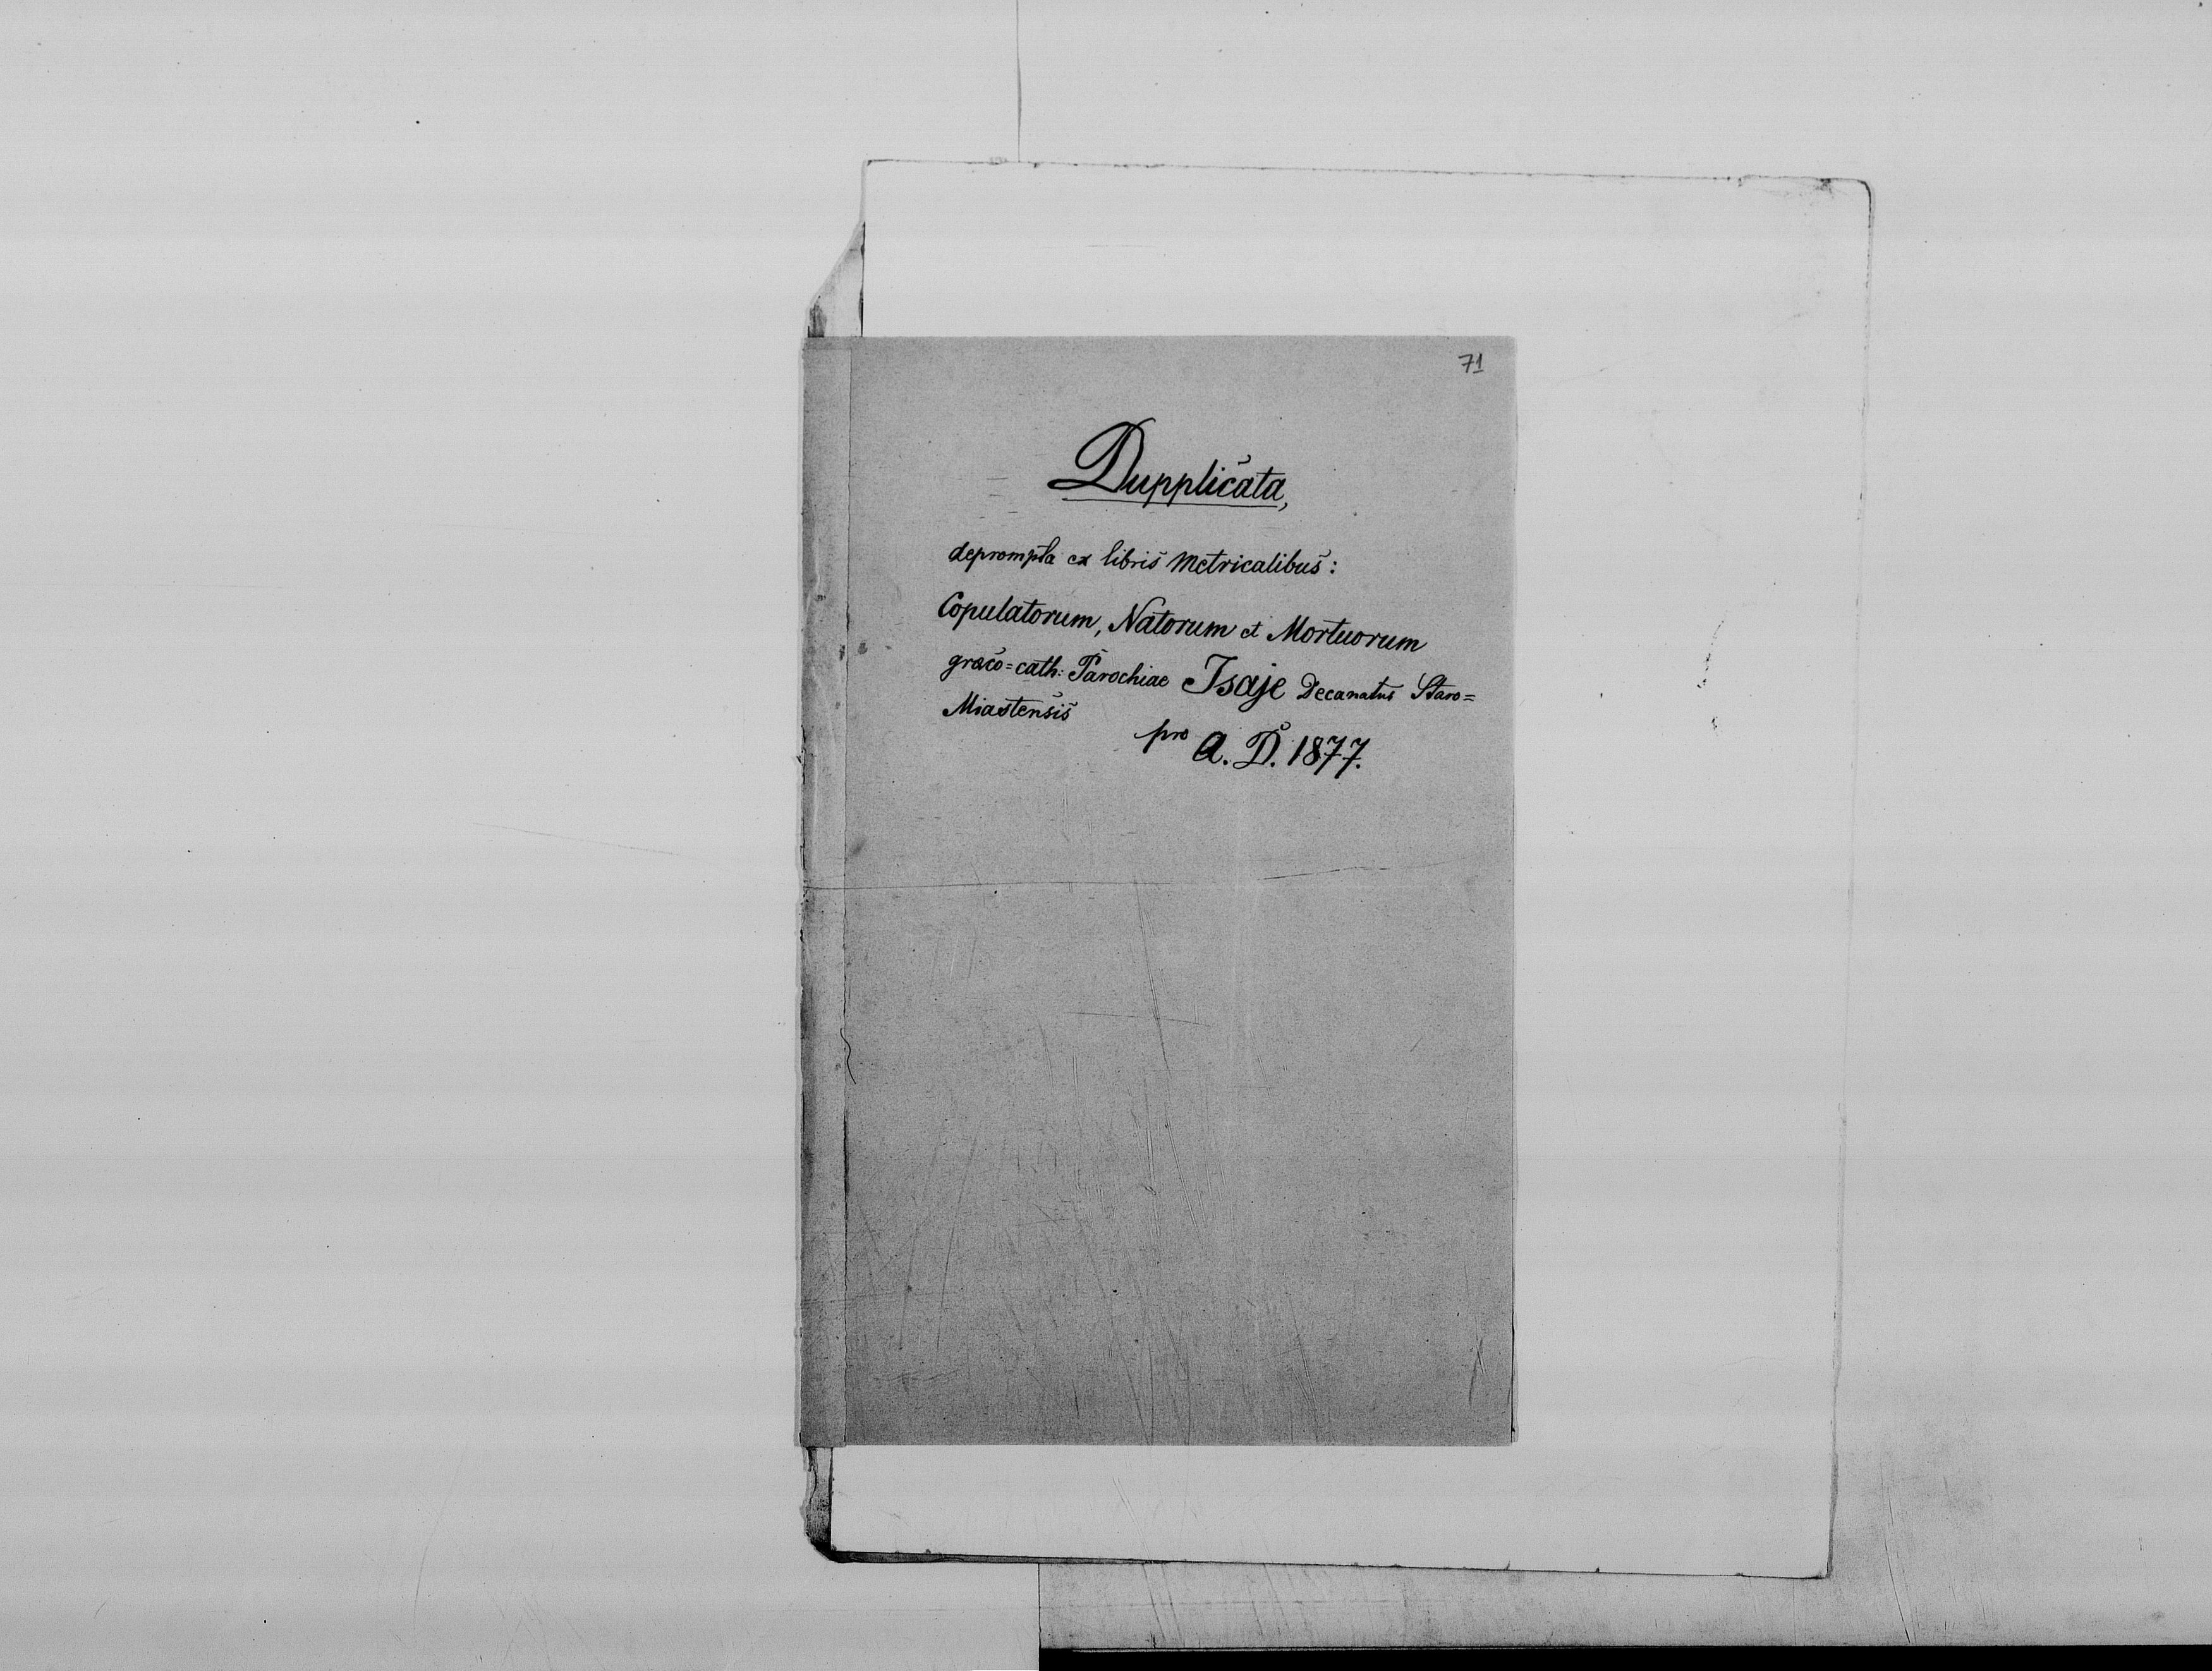 71
Dupplicata,
deprompta ex libris Metricalibus:
Copulatorum, Natorum et Mortuorum
graeco=cath: Parochiae Isaje Decanatus Staro=
Miastensis
pro A. D. 1877.